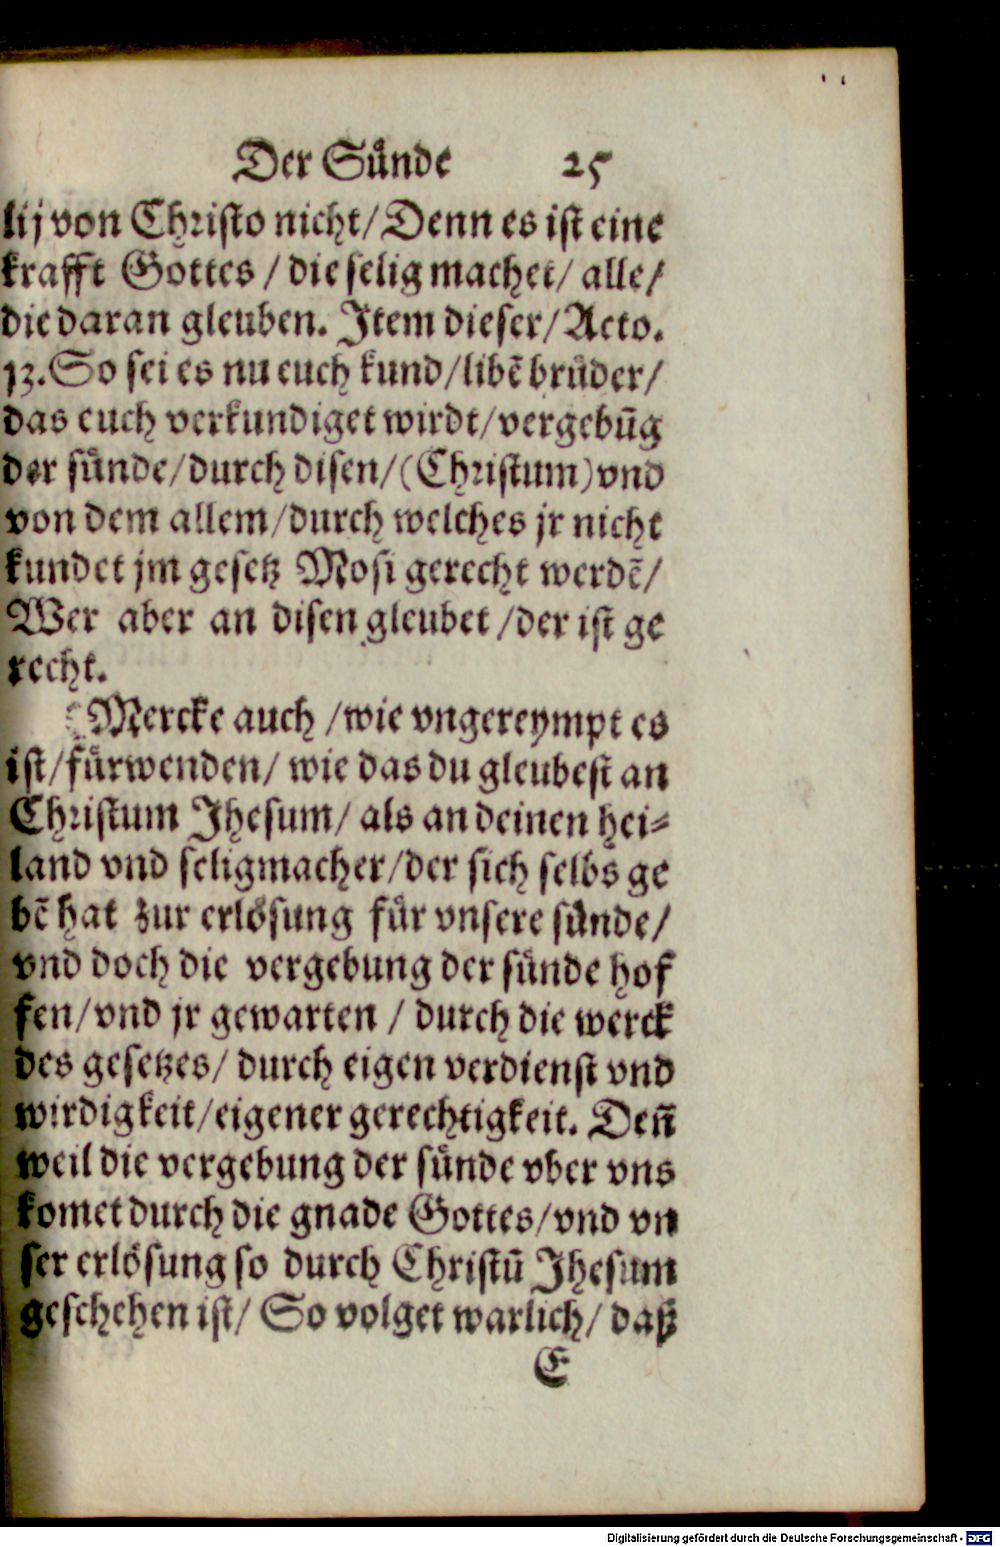 Der Sünde 25
lij von Christo nicht/ Denn es ist eine
krafft Gottes / die selig machet/ alle/
die daran gleuben. Item dieser/ Acto.
13. So sei es nu euch kund/ libē brüder/
das euch verkundiget wirdt/ vergebūg
der sünde/ durch disen/ (Christum) vnd
von dem allem/ durch welches jr nicht
kundet jm gesetz Mosi gerecht werdē/
Wer aber an disen gleubet / der ist ge
recht.
Mercke auch / wie vngereympt es
ist/ fürwenden/ wie das du gleubest an
Christum Jhesum/ als an deinen hei⸗
land vnd seligmacher/ der sich selbs ge
bē hat zur erlösung für vnsere sünde/
vnd doch die vergebung der sünde hof
fen/ vnd jr gewarten / durch die werck
des gesetzes/ durch eigen verdienst vnd
wirdigkeit/ eigener gerechtigkeit. Deñ
weil die vergebung der sünde vber vns
komet durch die gnade Gottes/ vnd vn
ser erlösung so durch Christū Jhesum
geschehen ist/ So volget warlich/ daß
E
Digitalisierung gefördert durch die Deutsche Forschungsgemeinschaft - DFG